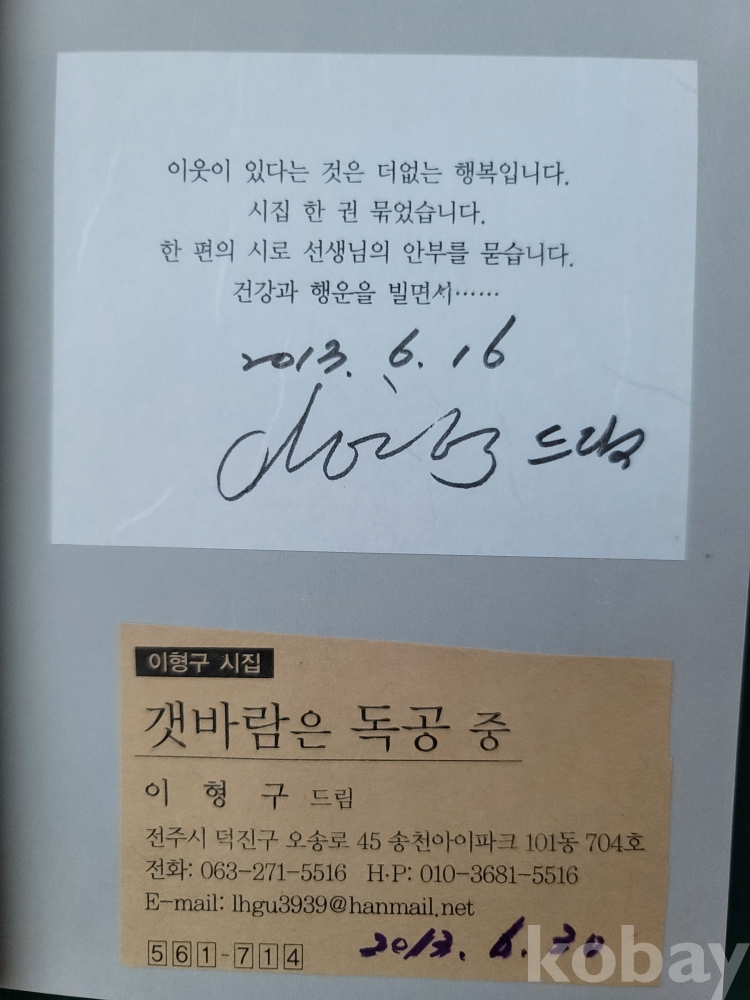 이웃이 있다는 것은 더없는 행복입니다.
시집 한 권 묶었습니다.
한 편의 시로 선생님의 안부를 묻습니다.
건강과 행운을 빌면서……
2013. 6. 16
드림
이형구 시집
갯바람은 독공 중
이 형 구 드림
전주시 덕진구 오송로 45 송천아이파크 101동 704호
전화: 063-271-5516 H·P: 010-3681-5516
E-mail: lhgu3939@hanmail.net
561-714 2013. 6. 20
kobay